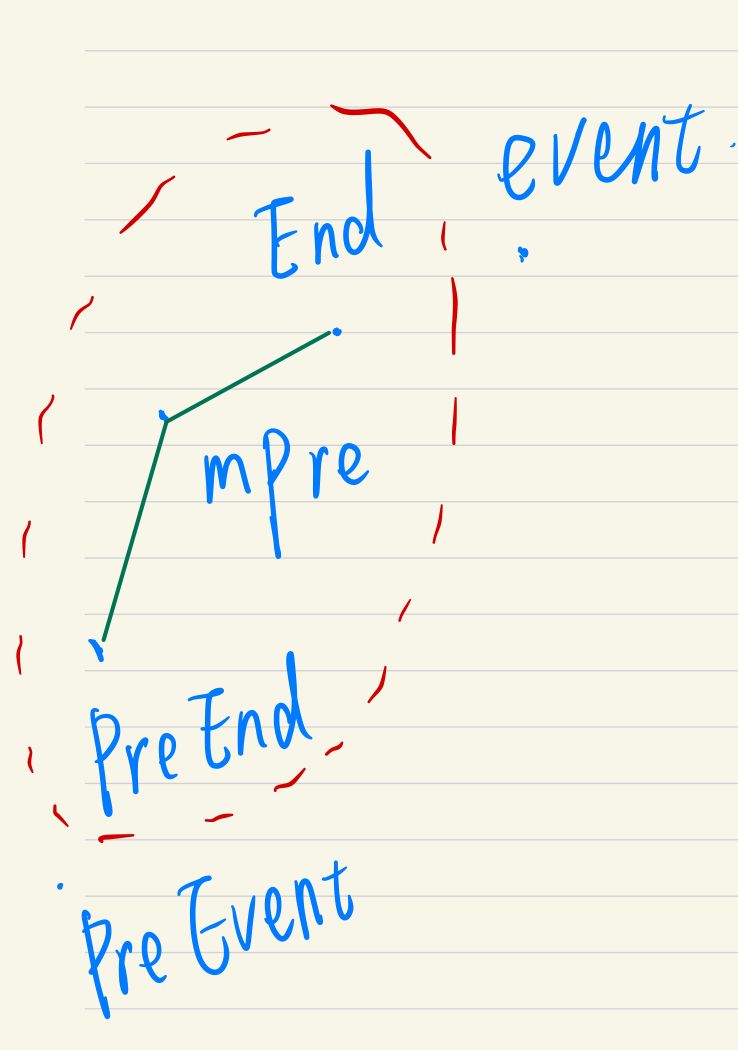 event
End
mPre
PreEnd
PreEvent